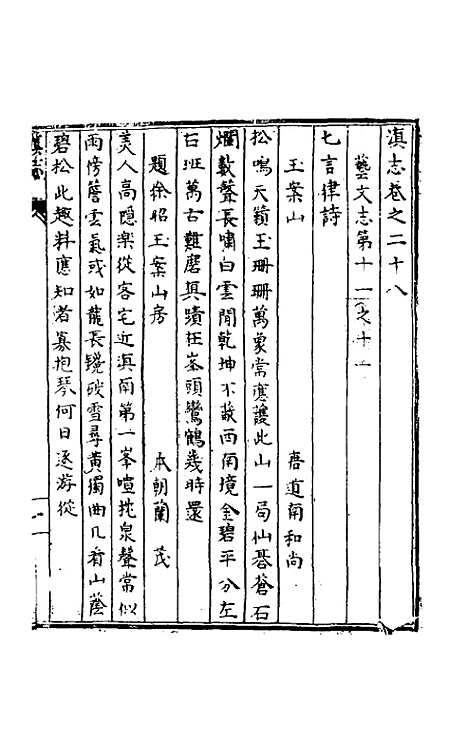 滇志卷之二十八
藝文志第十一之十一
七言律詩
玉案山 唐道南和尚
松鳴天籟玉珊珊萬象常應護此山一局仙棊蒼石
爛數聲長嘯白雲閒乾坤不蔽西南境金碧平分左
右班萬古難磨真蹟在峯頭鸞鶴幾時還
題徐昭玉案山房 本朝蘭茂
美人高隱樂從容宅近滇南第一峯喧挓泉聲常似
雨傍簷雲氣或如龍長鑱破雪尋黃獨曲几看山蔭
碧松此趣料應知者寡抱琴何日逐游從